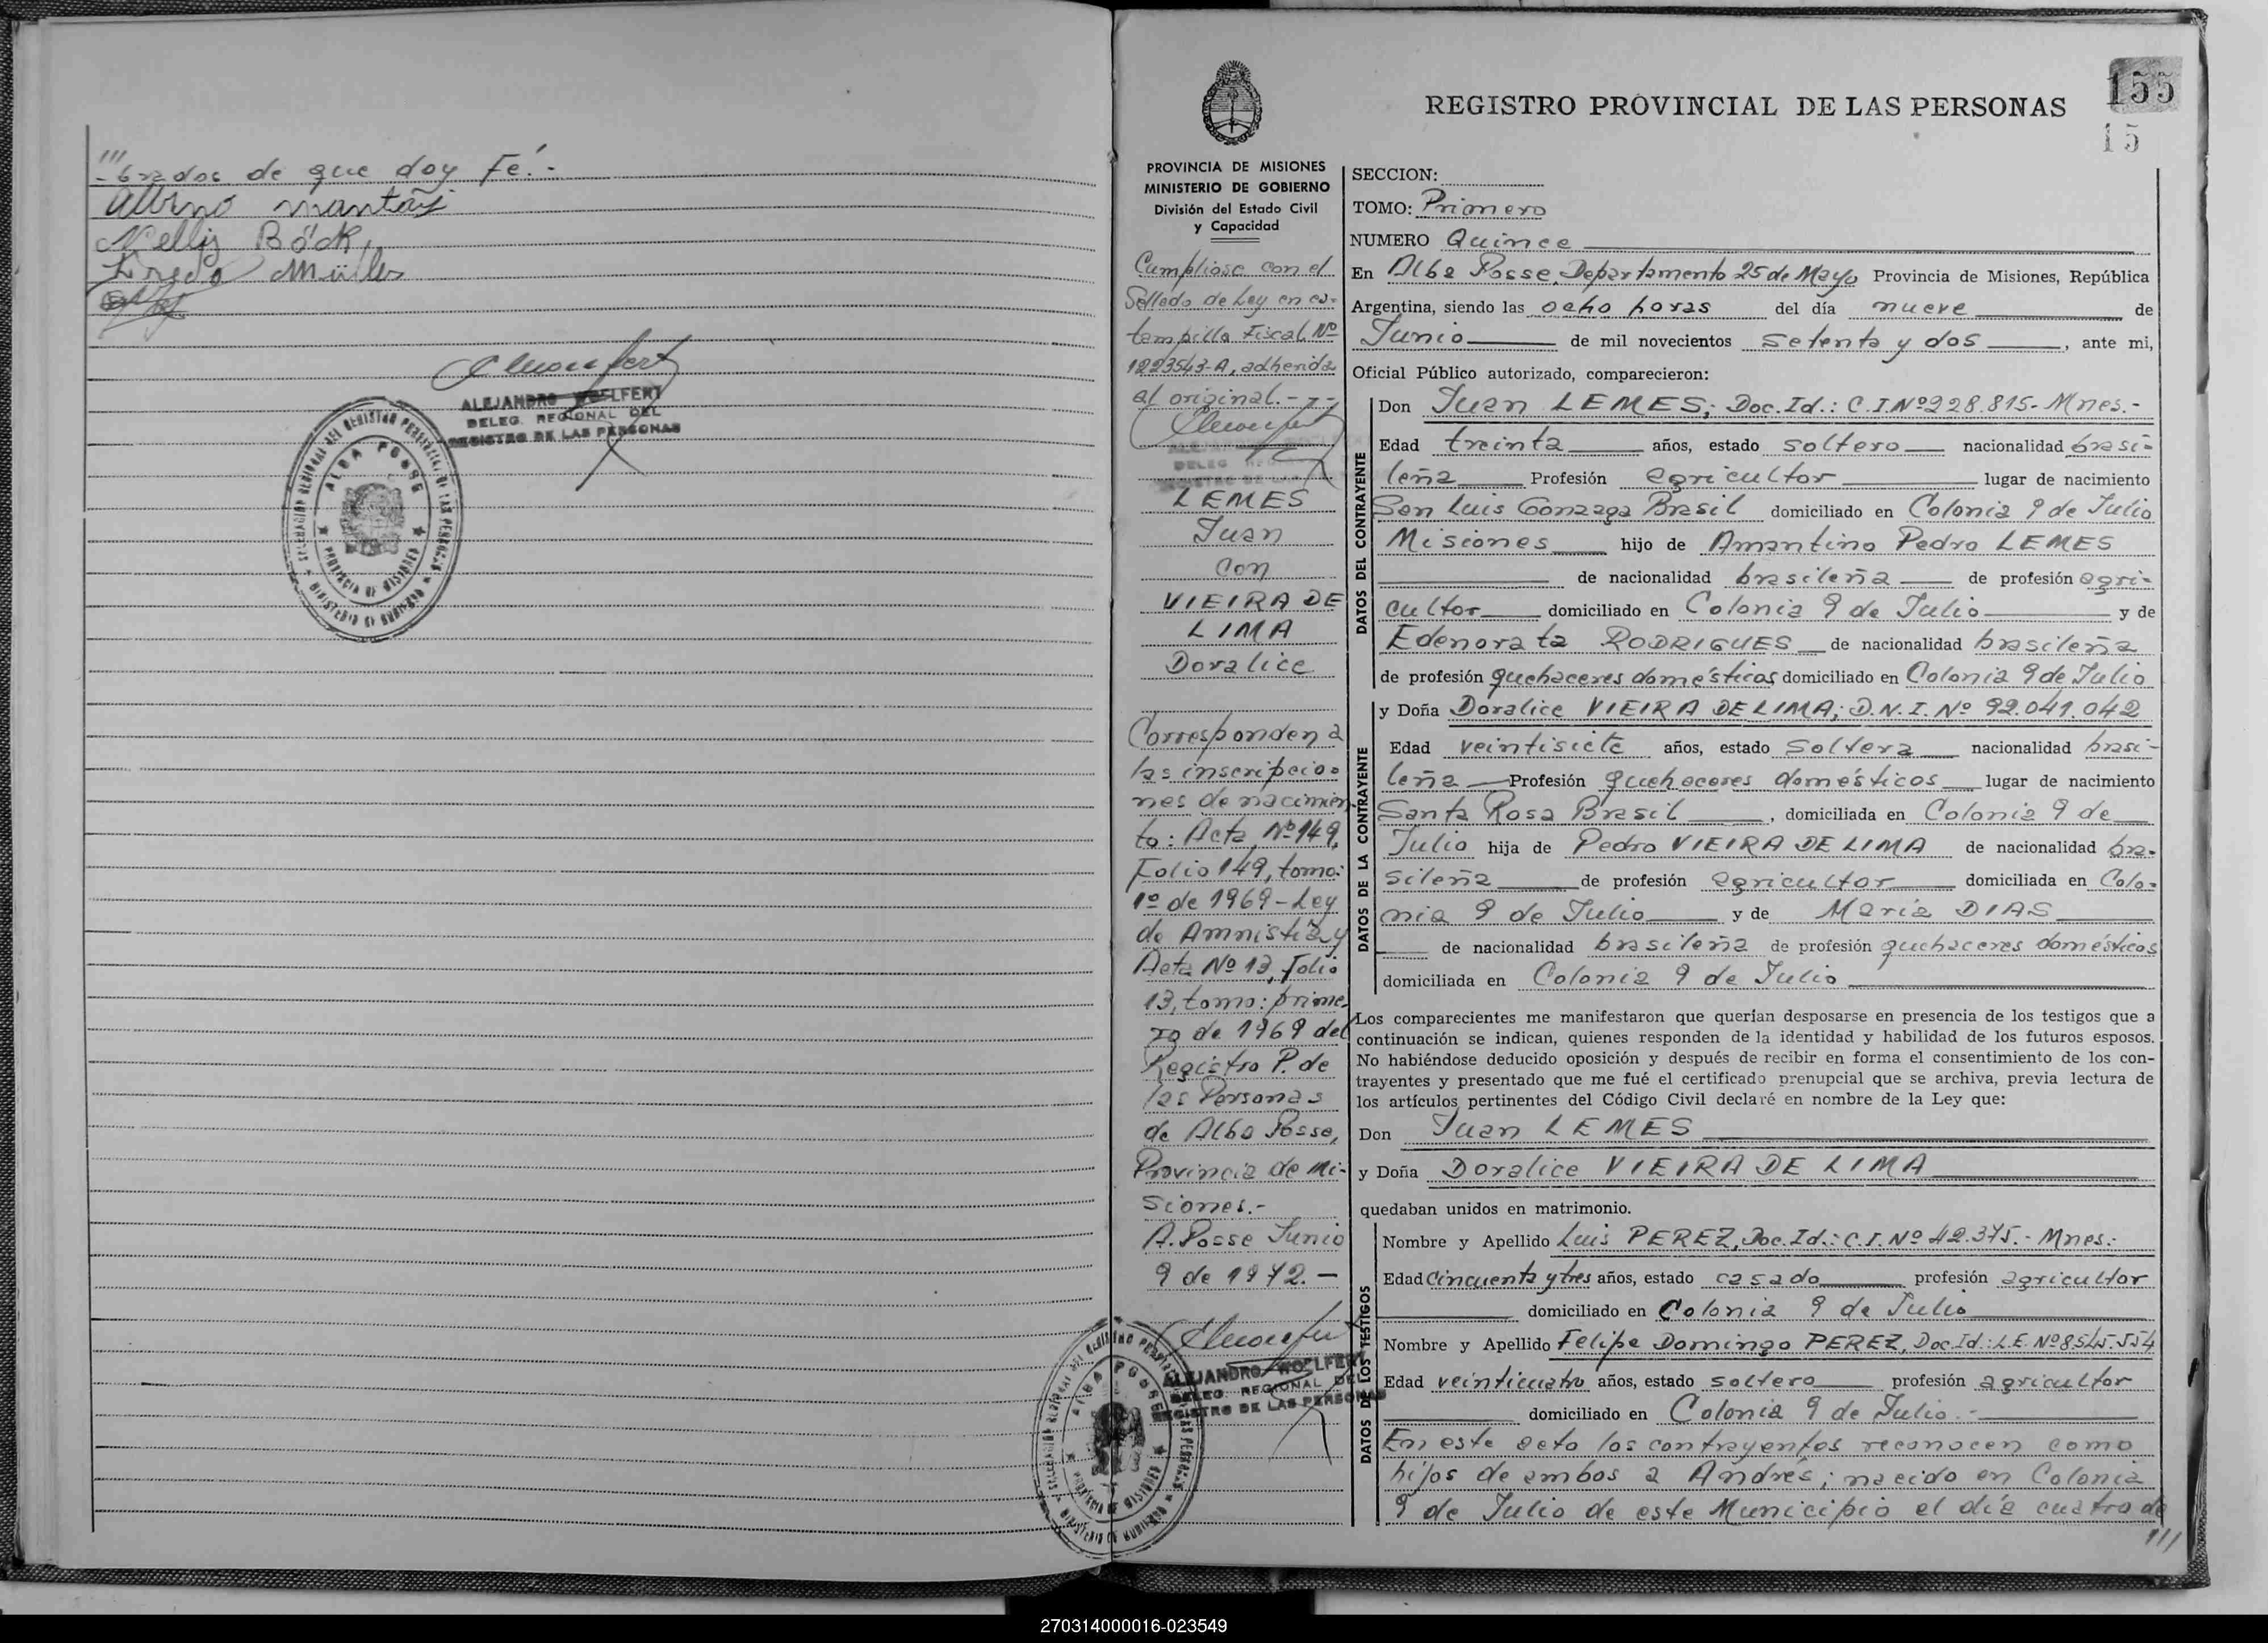 ///
-brados de que doy Fé.-
Albino mantay
Nellis Böck,
Fredo Müller
ALEJANDRO WOELFERT
DELEG. REGIONAL DEL
REGISTRO DE LAS PERSONAS
ALBA POSSE
PROVINCIA DE MISIONES
155
15
REGISTRO PROVINCIAL DE LAS PERSONAS
PROVINCIA DE MISIONES
MINISTERIO DE GOBIERNO
División del Estado Civil
y Capacidad
Cumplióse con el
Sellado de Ley en es-
tampilla Fiscal Nº
1223543-A, adherida
al original.-
LEMES
Juan
con
VIEIRA DE
LIMA
Doralice
Corresponden a
las inscripcio-
nes de nacimien
to: Acta Nº149,
Folio 149, tomo:
1º de 1969-Ley
de Amnistía y
Acta Nº 13, folio
13, tomo: prime-
ro de 1969 del
Registro P. de
las Personas
de Alba Posse,
Provincia de Mi-
siones.-
A. Posse Junio
9 de 1972.-
ALEJANDRO WOELFERT
DELEG. REGIONAL DEL
REGISTRO DE LAS PERSONAS
ALBA POSSE
SECCION:
TOMO: Primero
NUMERO Quince
En Alba Posse, Departamento 25 de Mayo Provincia de Misiones, República
Argentina, siendo las ocho horas del día nueve de
Junio de mil novecientos setenta y dos, ante mi,
Oficial Público autorizado, comparecieron:
DATOS DEL CONTRAYENTE
Don Juan LEMES; Doc. Id.: C.I.Nº228.815-Mnes.-
Edad treinta años, estado soltero nacionalidad brasi-
leña Profesión agricultor lugar de nacimiento
San Luis Gonzaga Brasil domiciliado en Colonia 9 de Julio
Misiones hijo de Amantino Pedro LEMES
de nacionalidad brasileña de profesión agri-
cultor domiciliado en Colonia 9 de Julio y de
Edenorata RODRIGUES de nacionalidad brasileña
de profesión quehaceres domésticos domiciliado en Colonia 9 de Julio
DATOS DE LA CONTRAYENTE
y Doña Doralice VIEIRA DE LIMA; D.N.I. Nº 92.041.042
Edad veintisiete años, estado soltera nacionalidad brasi-
leña Profesión quehaceres domésticos lugar de nacimiento
Santa Rosa Brasil, domiciliada en Colonia 9 de
Julio hija de Pedro VIEIRA DE LIMA de nacionalidad bra-
sileña de profesión agricultor domiciliada en Colo-
nia 9 de Julio y de María DIAS
de nacionalidad brasileña de profesión quehaceres domésticos
domiciliada en Colonia 9 de Julio
Los comparecientes me manifestaron que querían desposarse en presencia de los testigos que a
continuación se indican, quienes responden de la identidad y habilidad de los futuros esposos.
No habiéndose deducido oposición y después de recibir en forma el consentimiento de los con-
trayentes y presentado que me fué el certificado prenupcial que se archiva, previa lectura de
los artículos pertinentes del Código Civil declaré en nombre de la Ley que:
Don Juan LEMES
y Doña Doralice VIEIRA DE LIMA
quedaban unidos en matrimonio.
DATOS DE LOS TESTIGOS
Nombre y Apellido Luis PEREZ, Doc. Id.: C.I. Nº 42.375.- Mnes.-
Edad cincuenta y tres años, estado casado profesión agricultor
domiciliado en Colonia 9 de Julio
Nombre y Apellido Felipe Domingo PEREZ, Doc. Id.: L.E. Nº8545.554
Edad veinticuatro años, estado soltero profesión agricultor
domiciliado en Colonia 9 de Julio.-
En este acto los contrayentes reconocen como
hijos de ambos a Andrés; nacido en Colonia
9 de Julio de este Municipio el día cuatro de
///
270314000016-023549